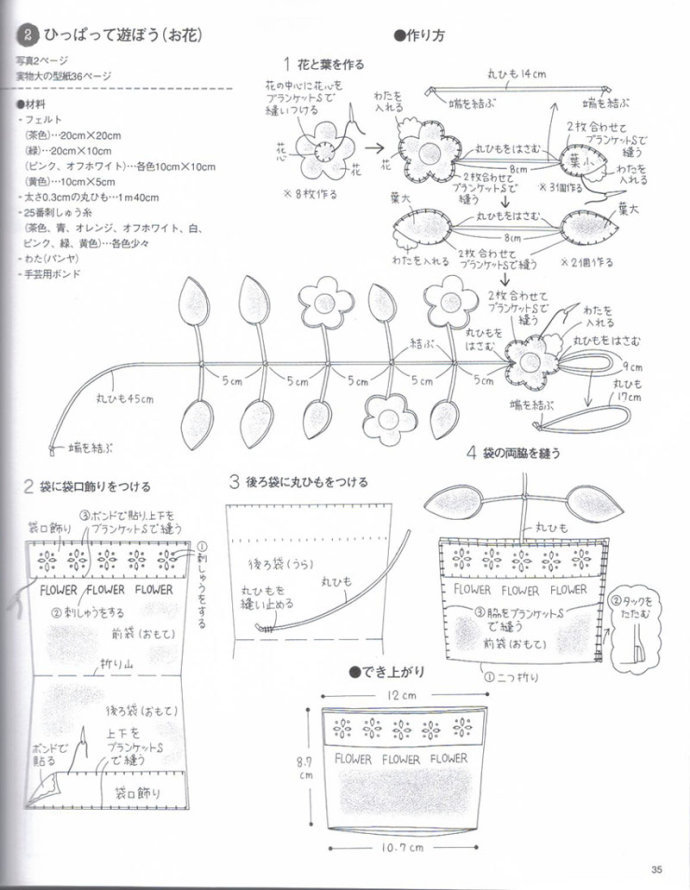 2 ひっぱって遊ぼう(お花)
写真2ページ
実物大の型紙36ページ
●材料
・フェルト
(茶色)…20cm×20cm
(緑)…20cm×10cm
(ピンク、オフホワイト)…各色10cm×10cm
(黄色)…10cm×5cm
・太さ0.3cmの丸ひも…1m40cm
・25番刺しゅう糸
(茶色、青、オレンジ、オフホワイト、白、
ピンク、緑、黄色)…各色少々
・わた(パンヤ)
・手芸用ボンド
●作り方
1 花と葉を作る
花の中心に花心を
ブランケットSで
縫いつける
花心
花
※8枚作る
わたを
入れる
花
丸ひも14cm
端を結ぶ
端を結ぶ
丸ひもをはさむ
8cm
2枚合わせて
ブランケットSで
縫う
2枚合わせて
ブランケットSで
縫う
葉小
わたを
入れる
※3個作る
葉大
丸ひもをはさむ
8cm
葉大
わたを入れる
2枚合わせて
ブランケットSで縫う
※2個作る
2枚合わせて
ブランケットSで
縫う
わたを
入れる
丸ひもを
はさむ
丸ひもをはさむ
9cm
丸ひも
17cm
端を結ぶ
結ぶ
5cm
5cm
5cm
5cm
5cm
丸ひも45cm
端を結ぶ
2 袋に袋口飾りをつける
③ボンドで貼り上下を
ブランケットSで縫う
袋口飾り
①刺しゅうをする
FLOWER FLOWER FLOWER
②刺しゅうをする
前袋(おもて)
折り山
後ろ袋(おもて)
上下を
ブランケットS
で縫う
ボンドで
貼る
袋口飾り
3 後ろ袋に丸ひもをつける
後ろ袋(うら)
丸ひもを
縫い止める
丸ひも
4 袋の両脇を縫う
丸ひも
FLOWER FLOWER FLOWER
③脇をブランケットS
で縫う
前袋(おもて)
①二つ折り
②タックを
たたむ
●でき上がり
12cm
8.7
cm
FLOWER FLOWER FLOWER
10.7cm
35